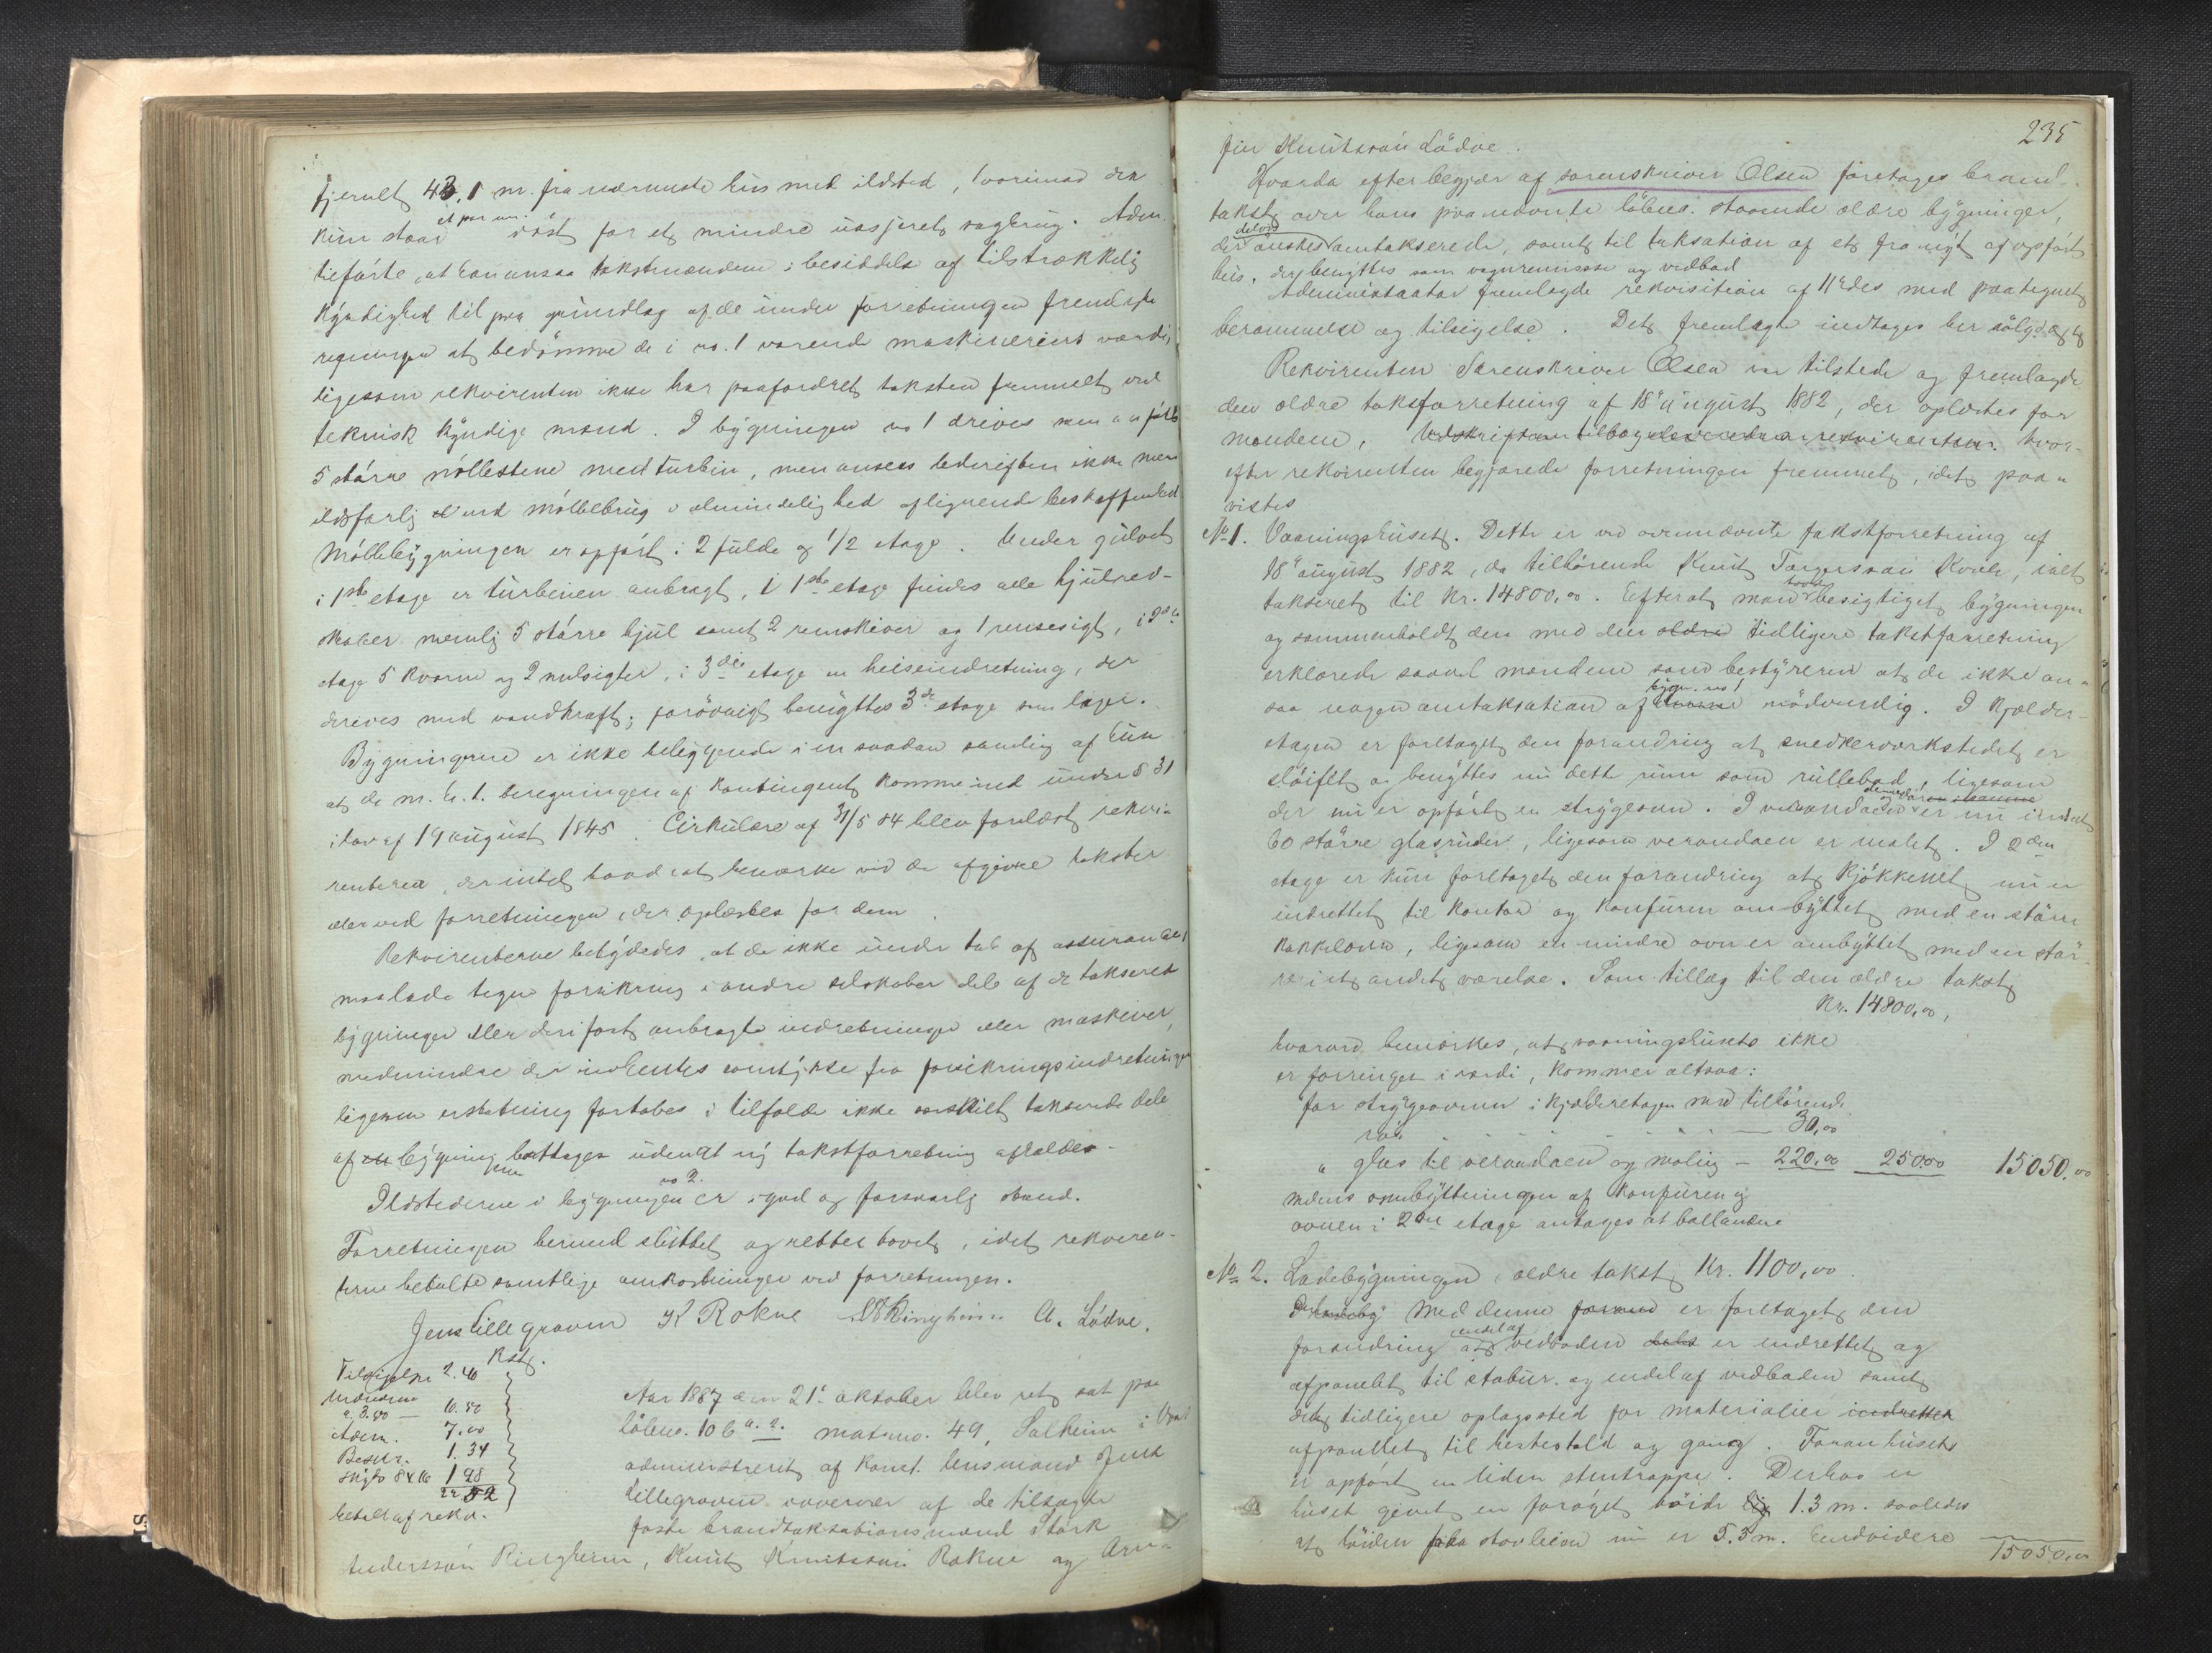 fjernelt 43,1 m. fra nærmeste hus med ildsted, hvorimod der
et par m.
kun staar øst for et mindre uasjuret sagbrug. Adm.
tilførte, at han ansaa takstmændene i besiddelse af tilstrækkelig
kyndighed til paa grundlag af de under forretningen fremlagte
regninger at bedömme de i no. 1 værende maskineriers værdi,
ligesom rekvirenten ikke har paafordret taksten fremmet ved
teknisk kyndige mænd. I bygningen no 1 drives nem
5 större möllestene med turbin, men ansees bedriften ikke mere
ildsfarlig end möllebrug i almindelighed af lignende beskaffenhed
Möllebygningen er opfört i 2 fulde og 1/2 etage. Under gulvet
i 1ste etage er turbinen anbragt, i 1ste etage findes alle hjulred-
skaber nemlig 5 större hjul samt 2 remskiver og 1 rensesigt, i 2den
etage 5 kverne og 2 melsigter, i 3die etage en heiseindretning, der
drives med vandkraft; forövrigt benyttes 3de etage som lager.
Bygningerne er ikke beliggende i en saadan samling af hus
at de m. h. t. beregningen af kontingent komme ind under § 31
i lov af 19 august 1845. Cirkulære af 31/5 84 blev forelæst rekvi-
renterne, der intet havde at bemærke ved de afgivne takster
eller ved forretningen, der oplæstes for dem.
Rekvirenterne betydedes, at de ikke under tab af assurance
maa lade tegne forsikring i andre selskaber dele af de takserede
bygninger eller deri fast anbragte indretninger eller maskiner,
medmindre der indhentes samtykke fra forsikringsindretningen
ligesom erstatning fortabes i tilfælde ikke særskilt takserede dele
af en bygning borttages uden at ny takstforretning afholdes.
no 2.
Ildstederne i bygningen er i god og forsvarlig stand.
Forretningen hermed sluttet og rettet hævet, idet rekviren-
terne betalte samtlige omkostninger ved forretningen.
Jens Lillegraven K Rokne A. Lödve.
Rstg.
Tilsigelse 2.40
Mændene
a 3.50 — 10.50
Adm. 7.00
Besør. 1.34
skyds 8 x 16 1 28
22.52
betalt af rekv.
Aar 1887 den 21e oktober blev ret sat paa
löbeno. 106 a. 2. matrno. 49, Salheim i Vos
administreret af konst. lensmand Jens
Lillegraven overvær af de tilsagte
faste brandtaksationsmænd Störk
Andersson Ringheim, Knut Knutsson Rokne og Arn-
235
fin Knutsson Lödve.
Hvorda efter begjær af sorenskriver Olsen foretages brand-
takst over hans paa nævnte löbeno. staaende ældre bygninger,
delvis
der önskes omtakserede, samt til taksation af et fra nyt af opfört
hus, der benyttes som vognremisse og vedbod
Administrator fremlagde rekvisition af 11te des med paategnet
berammelse og tilsigelse. Det fremlagte indtages her
Rekvirenten Sorenskriver Olsen var tilstede og fremlagde
den ældre takstforretning af 18de august 1882, der oplæstes for
mændene. Udskriften tilbageleveredes rekvirenten. hvor-
efter rekvirenten begjærede forretningen fremmet, idet paa-
vistes
No 1. Vaaningshuset. Dette er ved ovennævnte takstforretning af
18de august 1882, da tilhörende Knut Torgersson Kvale, ialt
havde
takseret til Kr. 14800,00. Efterat mænd besigtiget bygningen
og sammenholdt den med den ældre tidligere takstforretning
erklærede saavel mændene som bestyreren at de ikke an-
bygn. no 1
saa nogen omtaksation af denne nödvendig. I kjælder-
etagen er foretaget den forandring at snedkerværkstedet er
slöifet og benyttes nu dette rum som rullebod, ligesom
der nu er opfört en strygeovn. I verandaen er nu indsat
60 större glasruder, ligesom verandaen er malet. I 2den
etage er kun foretaget den forandring at kjökkenet nu er
indrettet til kontor og komfuren ombyttet med en större
kakkelovn, ligesom en mindre ovn er ombyttet med en stör-
re i et andet værelse. Som tillæg til den ældre takst
Kr. 14800,00,
hvorved bemærkes, at vaaningshuset ikke
er forringet i værdi, kommer altsaa:
for strygeovnen i kjælderetagen med tilhörende
rör — 30,00
" glas til verandaen og maling — 220,00 250,00 15050,00
mens ombyttningen af komfuren og
ovnen i 2den etage antages at ballancere
No 2. Ladebygningen, ældre takst Kr. 1100,00.
Med denne er foretaget den
endel af
forandring at vedboden er indrettet og
afpanelet til stabur. og endel af vedboden samt
det tidligere oplagssted for materialier indrettet
afpanelet til hestestald og gang. Foran huset
er opfört en liden stentrappe. Derhos er
huset givet en foröget höide 1.3 m. saaledes
at höiden fra stovleien nu er 5.5 m. Endvidere
15050,00